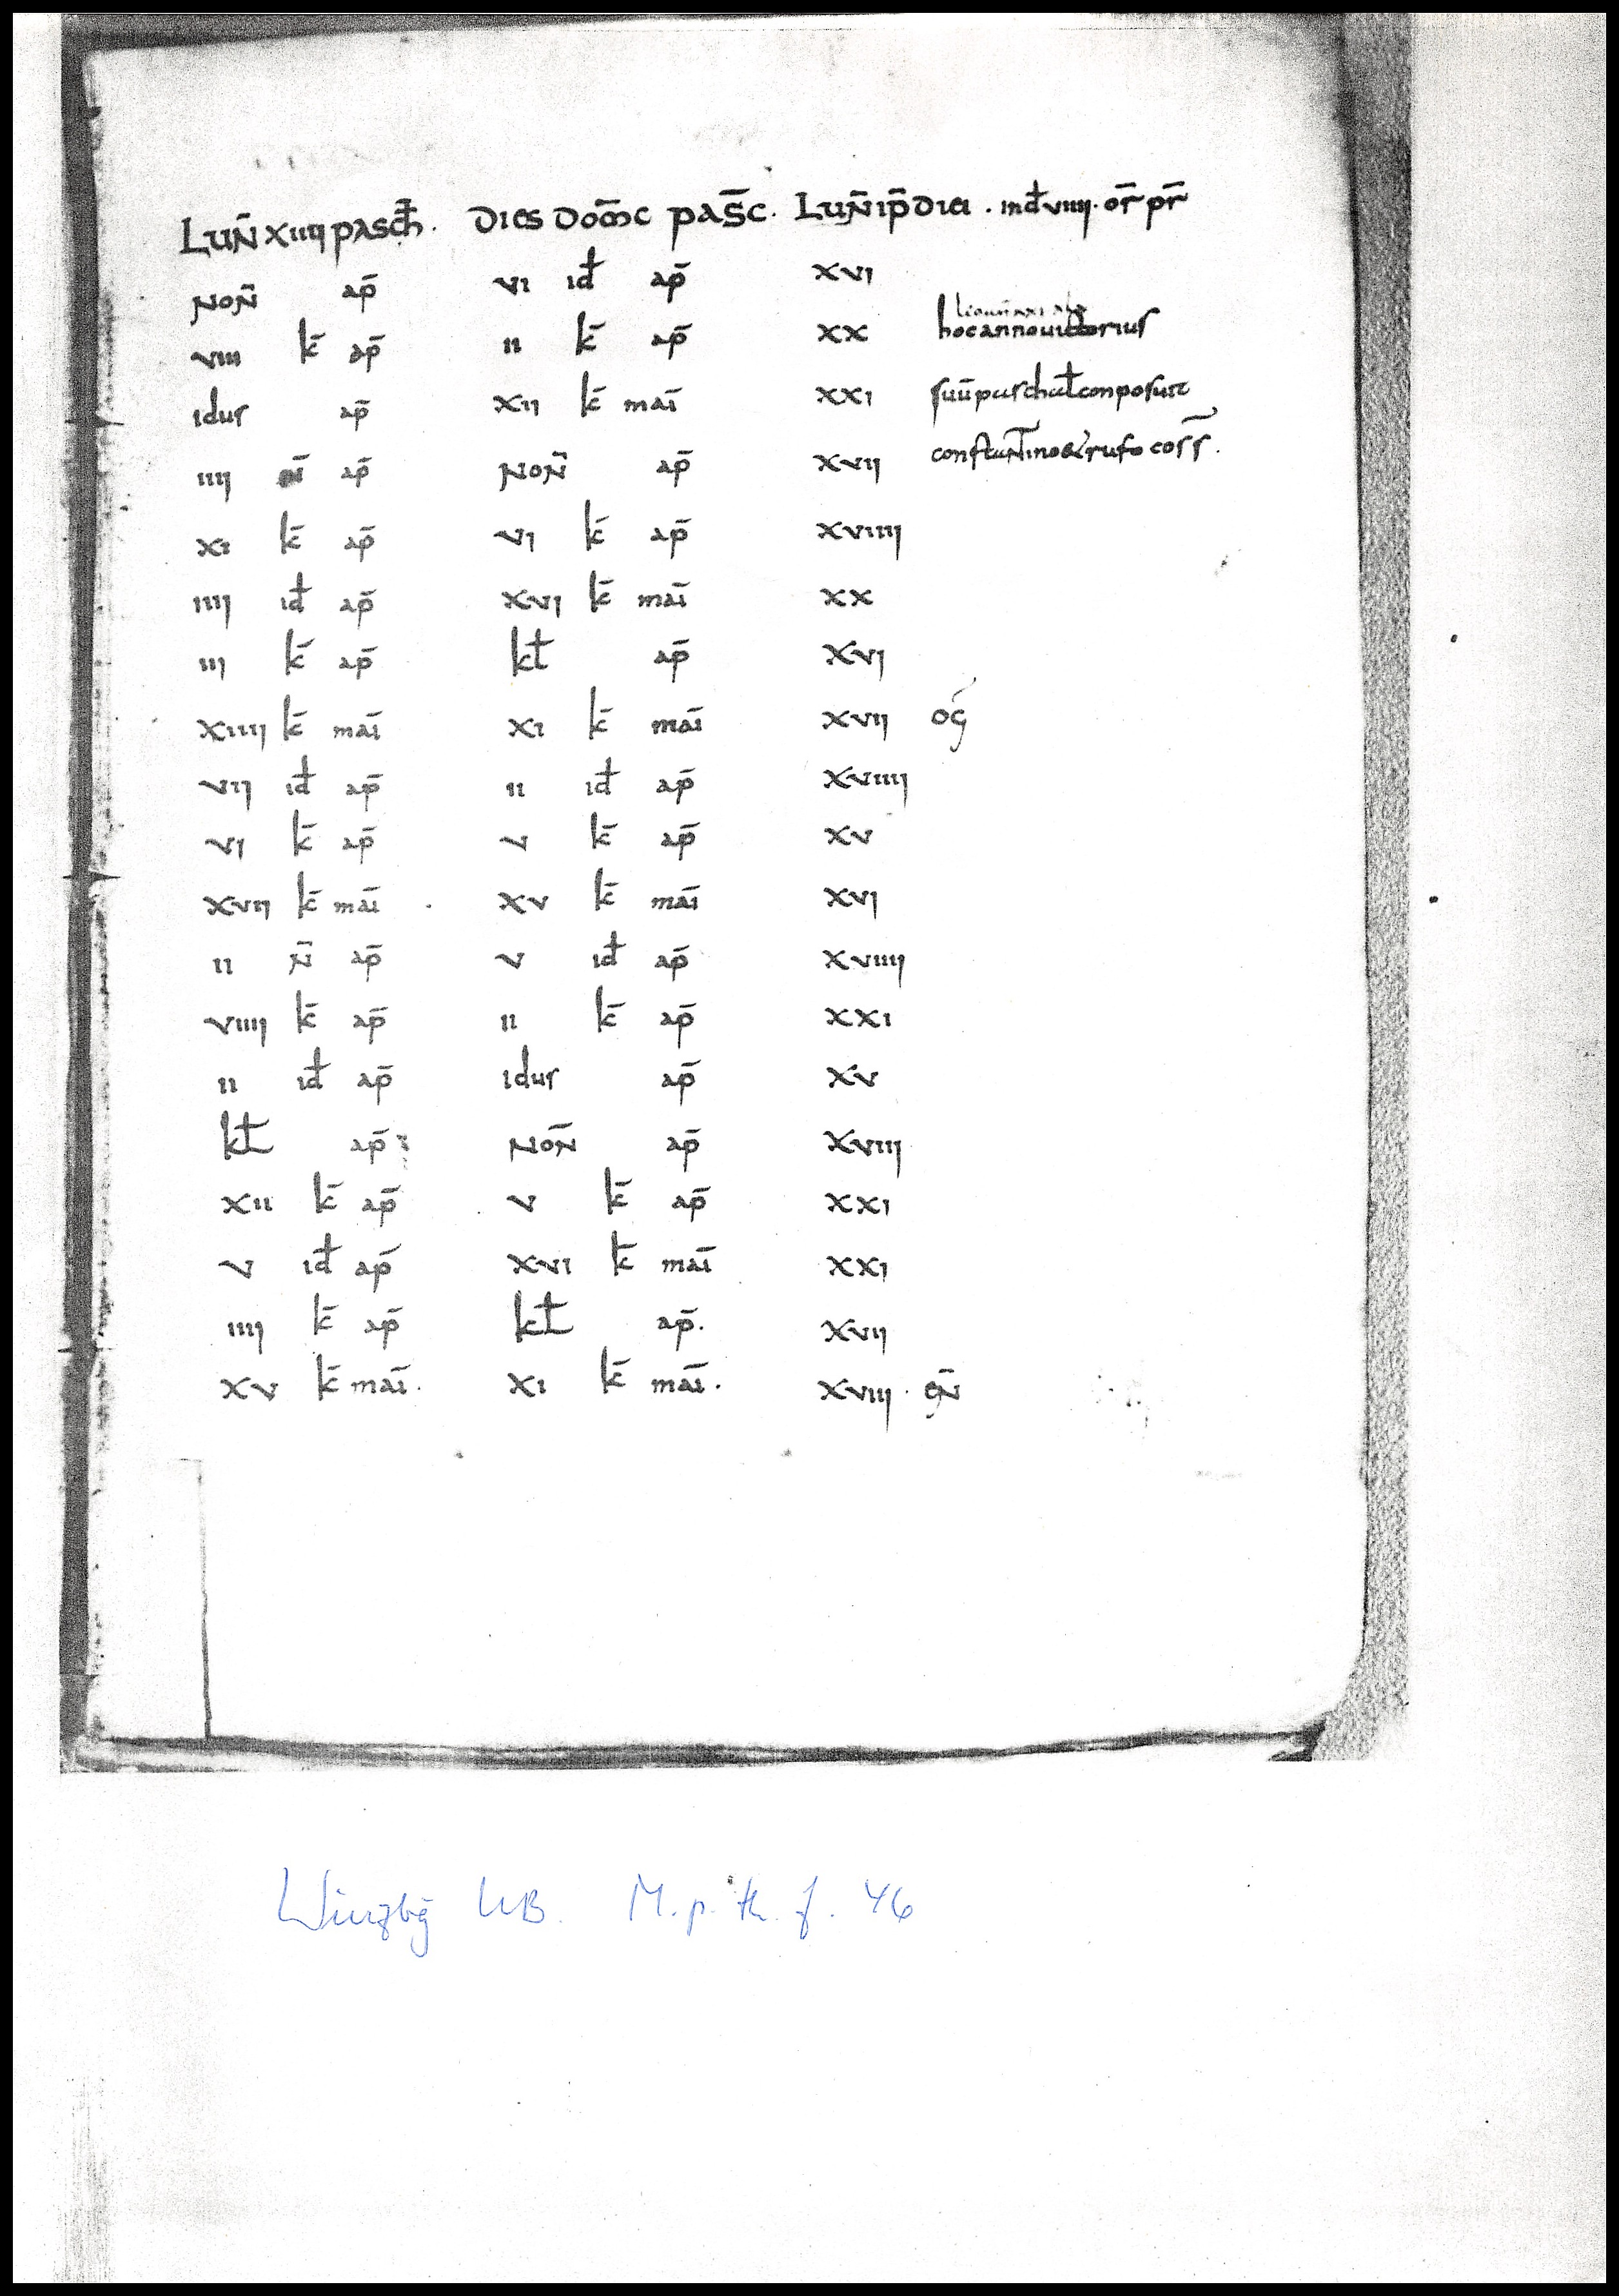 Lun̄ xiiii pasch̄. dies dom̄c pas̄c. Lun̄ ip̄ diei. ind̄ viiii. or̄ pr̄
Non̄ ap̄ vi id̄ ap̄ xvi
viii k̄ ap̄ ii k̄ ap̄ xx hocannouictorius
idus ap̄ xii k̄ mai̅ xxi suū paschał conposuit
iiii n̄ ap̄ Non̄ ap̄ xvii constantino & rufo coss̄.
xi k̄ ap̄ vi k̄ ap̄ xviiii
iiii id̄ ap̄ xvi k̄ mai̅ xx
iii k̄ ap̄ kł ap̄ xvi
xiiii k̄ mai̅ xi k̄ mai̅ xvii og̅
vii id̄ ap̄ ii id̄ ap̄ xviiii
vi k̄ ap̄ v k̄ ap̄ xv
xvii k̄ mai̅ xv k̄ mai̅ xvi
ii n̄ ap̄ v id̄ ap̄ xviiii
viiii k̄ ap̄ ii k̄ ap̄ xxi
ii id̄ ap̄ idus ap̄ xv
kł ap̄ Non̄ ap̄ xviii
xii k̄ ap̄ v k̄ ap̄ xxi
v id̄ ap̄ xvi k̄ mai̅ xxi
iiii k̄ ap̄ kł ap̄. xvii
xv k̄ mai̅. xi k̄ mai̅. xviii. en̄
Würzbg UB. M. p. th. f. 46